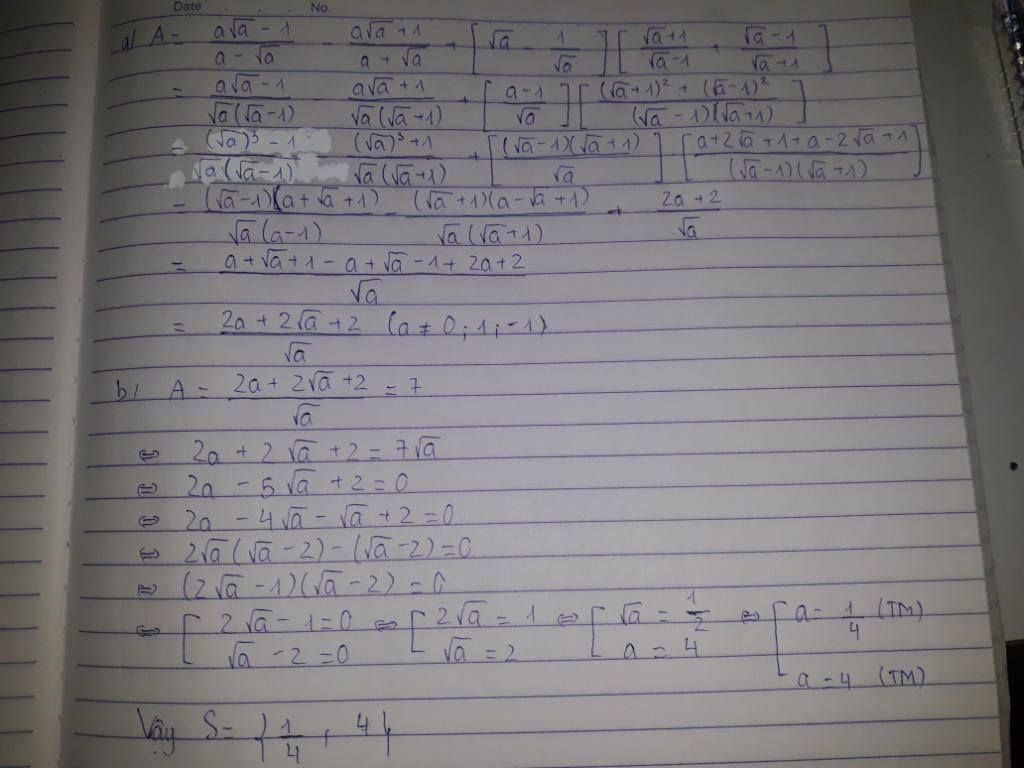 Date No.
a/ A = (a√a - 1)/(a - √a) - (a√a + 1)/(a + √a) + [√a - 1/√a] [(√a+1)/(√a-1) + (√a-1)/(√a+1)]
= (a√a - 1)/(√a(√a-1)) - (a√a + 1)/(√a(√a+1)) + [(a-1)/√a] [((√a+1)² + (√a-1)²)/((√a-1)(√a+1))]
= ((√a)³ - 1)/(√a(√a-1)) ((√a)³ + 1)/(√a(√a+1)) + [(√a-1)(√a+1)/√a] . [(a+2√a+1+a-2√a+1)/((√a-1)(√a+1))]
= (√a-1)(a+√a+1)/(√a(a-1)) - (√a+1)(a-√a+1)/(√a(√a+1)) + (2a+2)/√a
= (a+√a+1-a+√a-1+2a+2)/√a
= (2a+2√a+2)/√a (a ≠ 0; 1; -1)
b/ A = (2a+2√a+2)/√a = 7
⇔ 2a + 2√a + 2 = 7√a
⇔ 2a - 5√a + 2 = 0
⇔ 2a - 4√a - √a + 2 = 0
⇔ 2√a(√a-2) - (√a-2) = 0
⇔ (2√a-1)(√a-2) = 0
⇔ [2√a - 1 = 0 ⇔ [2√a = 1 ⇔ [√a = 1/2 ⇔ [a = 1/4 (TM)
√a - 2 = 0 √a = 2 a = 4 a = 4 (TM)
Vậy S = {1/4, 4}